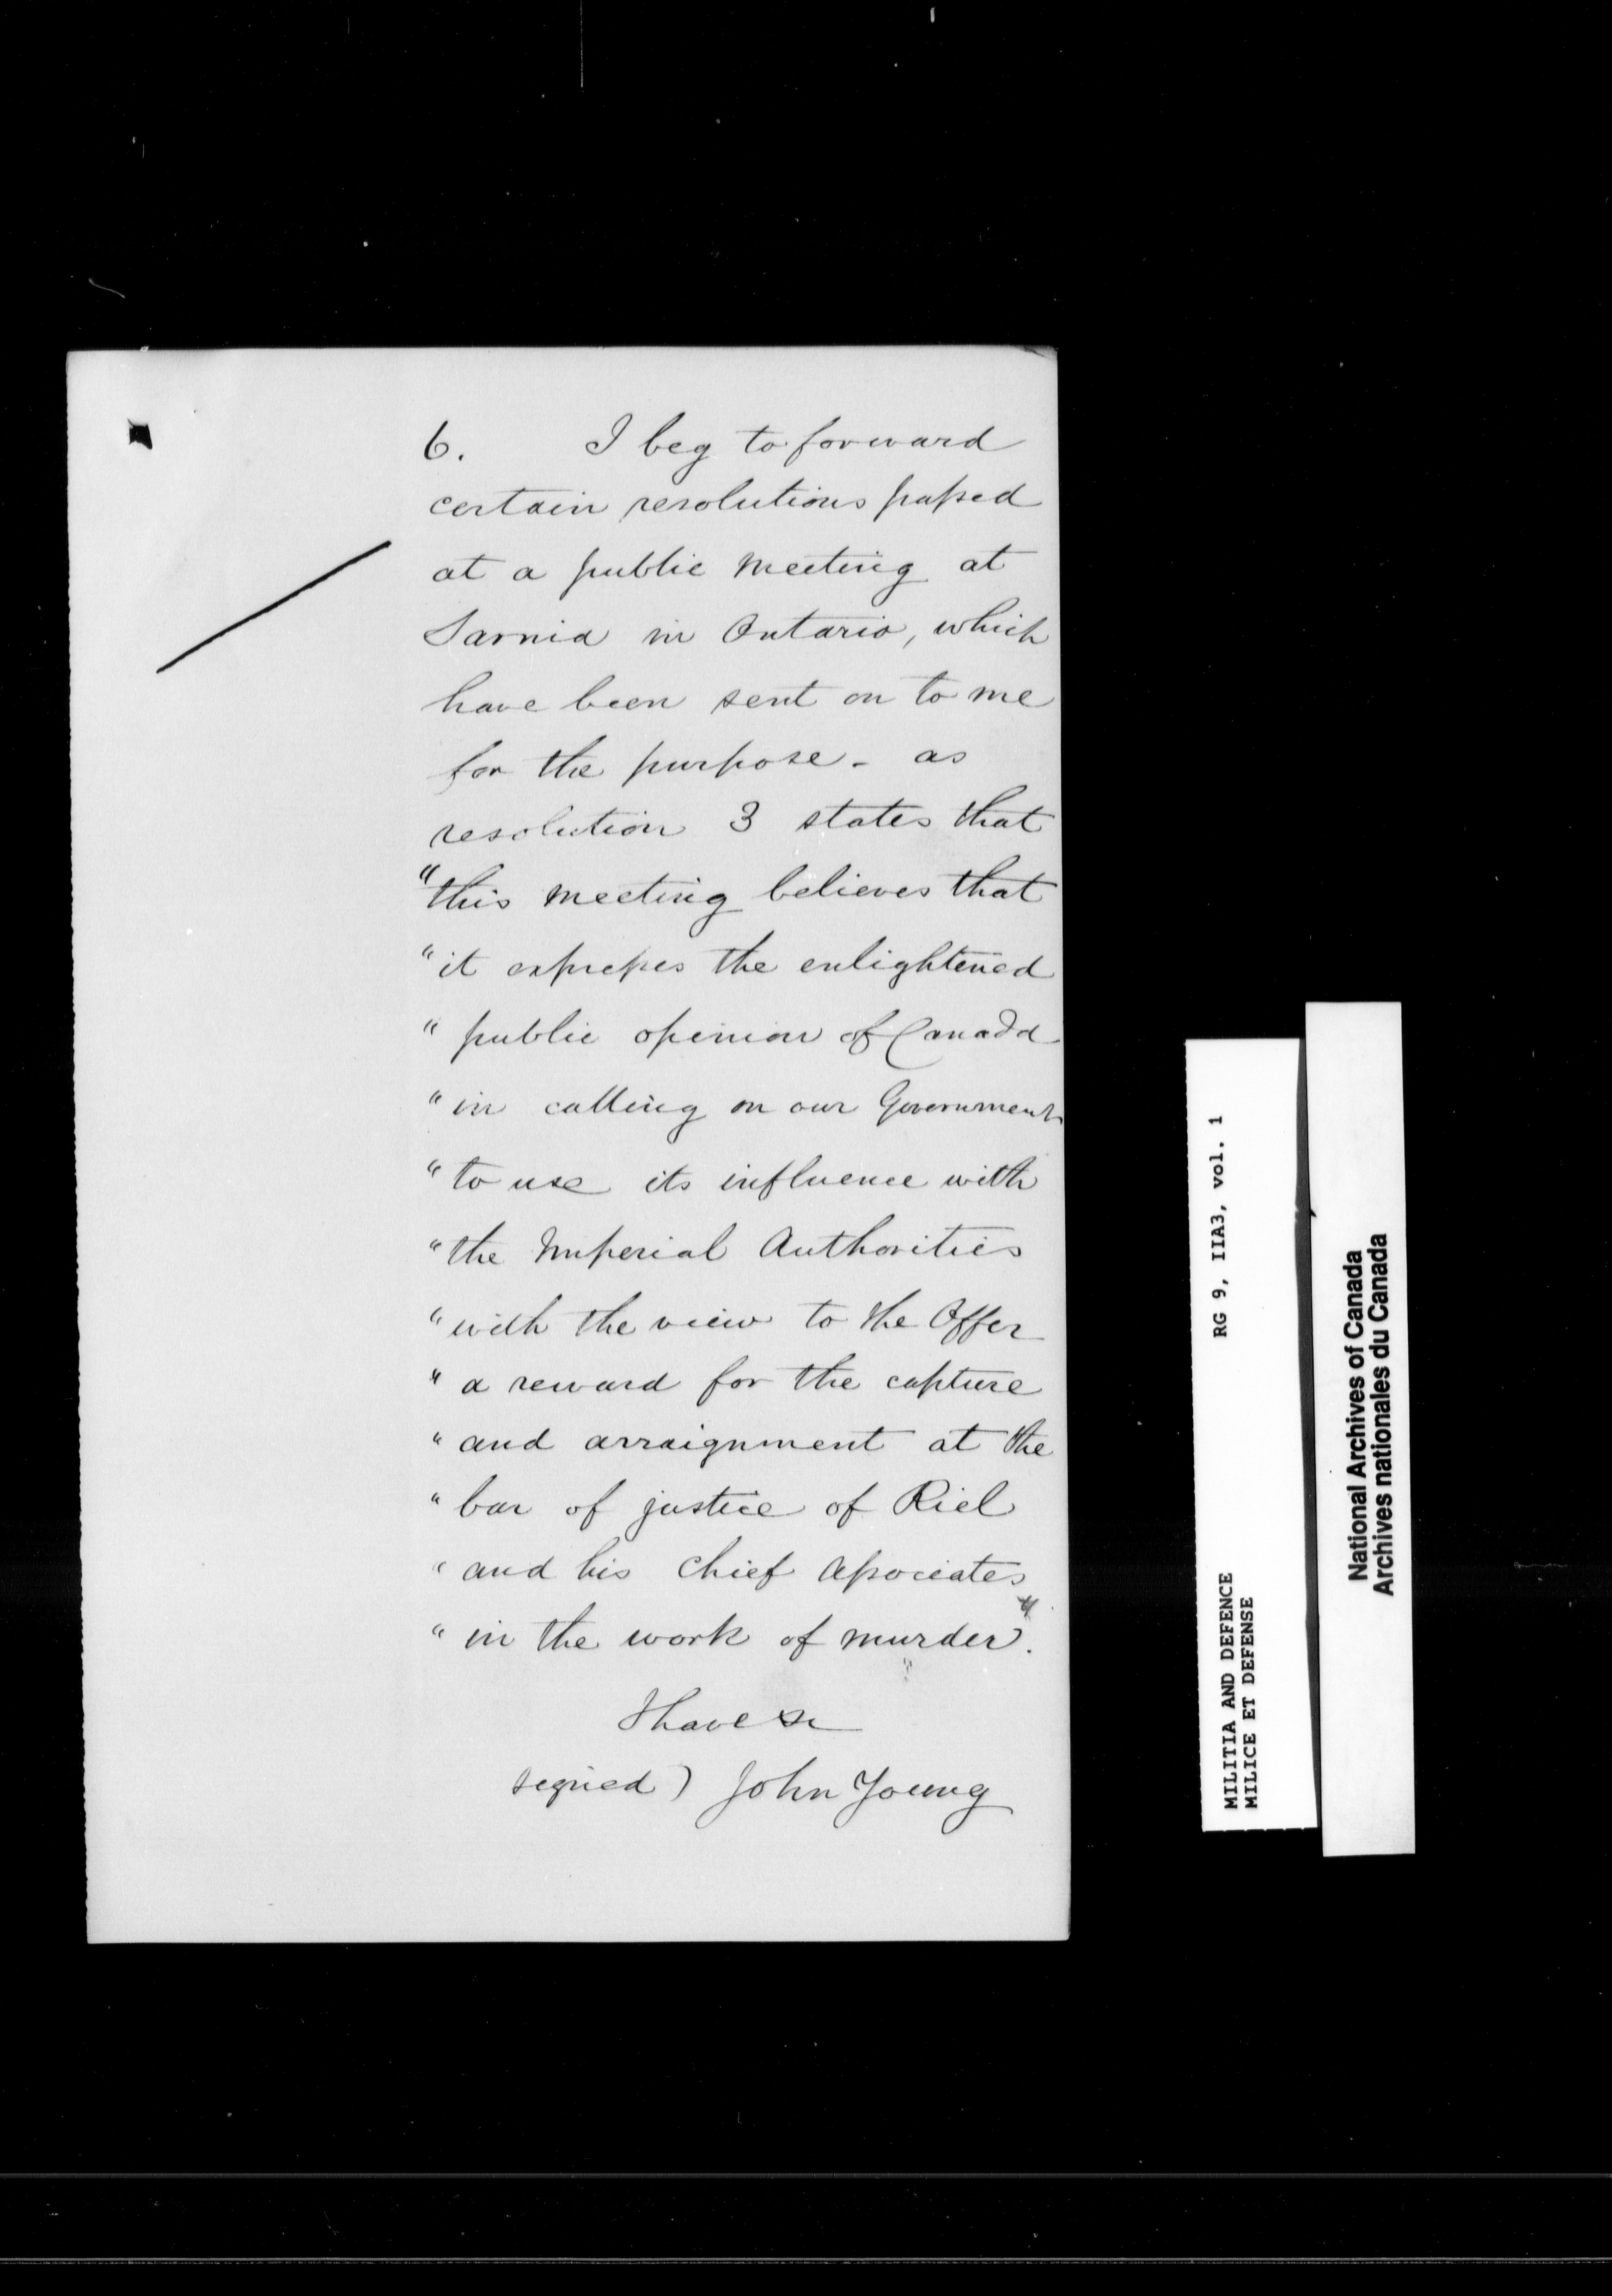 6. I beg to forward
certain resolutions passed
at a public meeting at
Sarnia in Ontario, which
have been sent on to me
for the purpose - as
resolution 3 states that
"this meeting believes that
"it expresses the enlightened
"public opinion of Canada
"in calling on our Government
"to use its influence with
"the Imperial Authorities
"with the view to the Offer
"a reward for the capture
"and arraignment at the
"bar of justice of Riel
"and his Chief Associates
"in the work of murder".
I have &c
signed) John Young
MILITIA AND DEFENCE RG 9, IIA3, vol. 1
MILICE ET DEFENSE
National Archives of Canada
Archives nationales du Canada